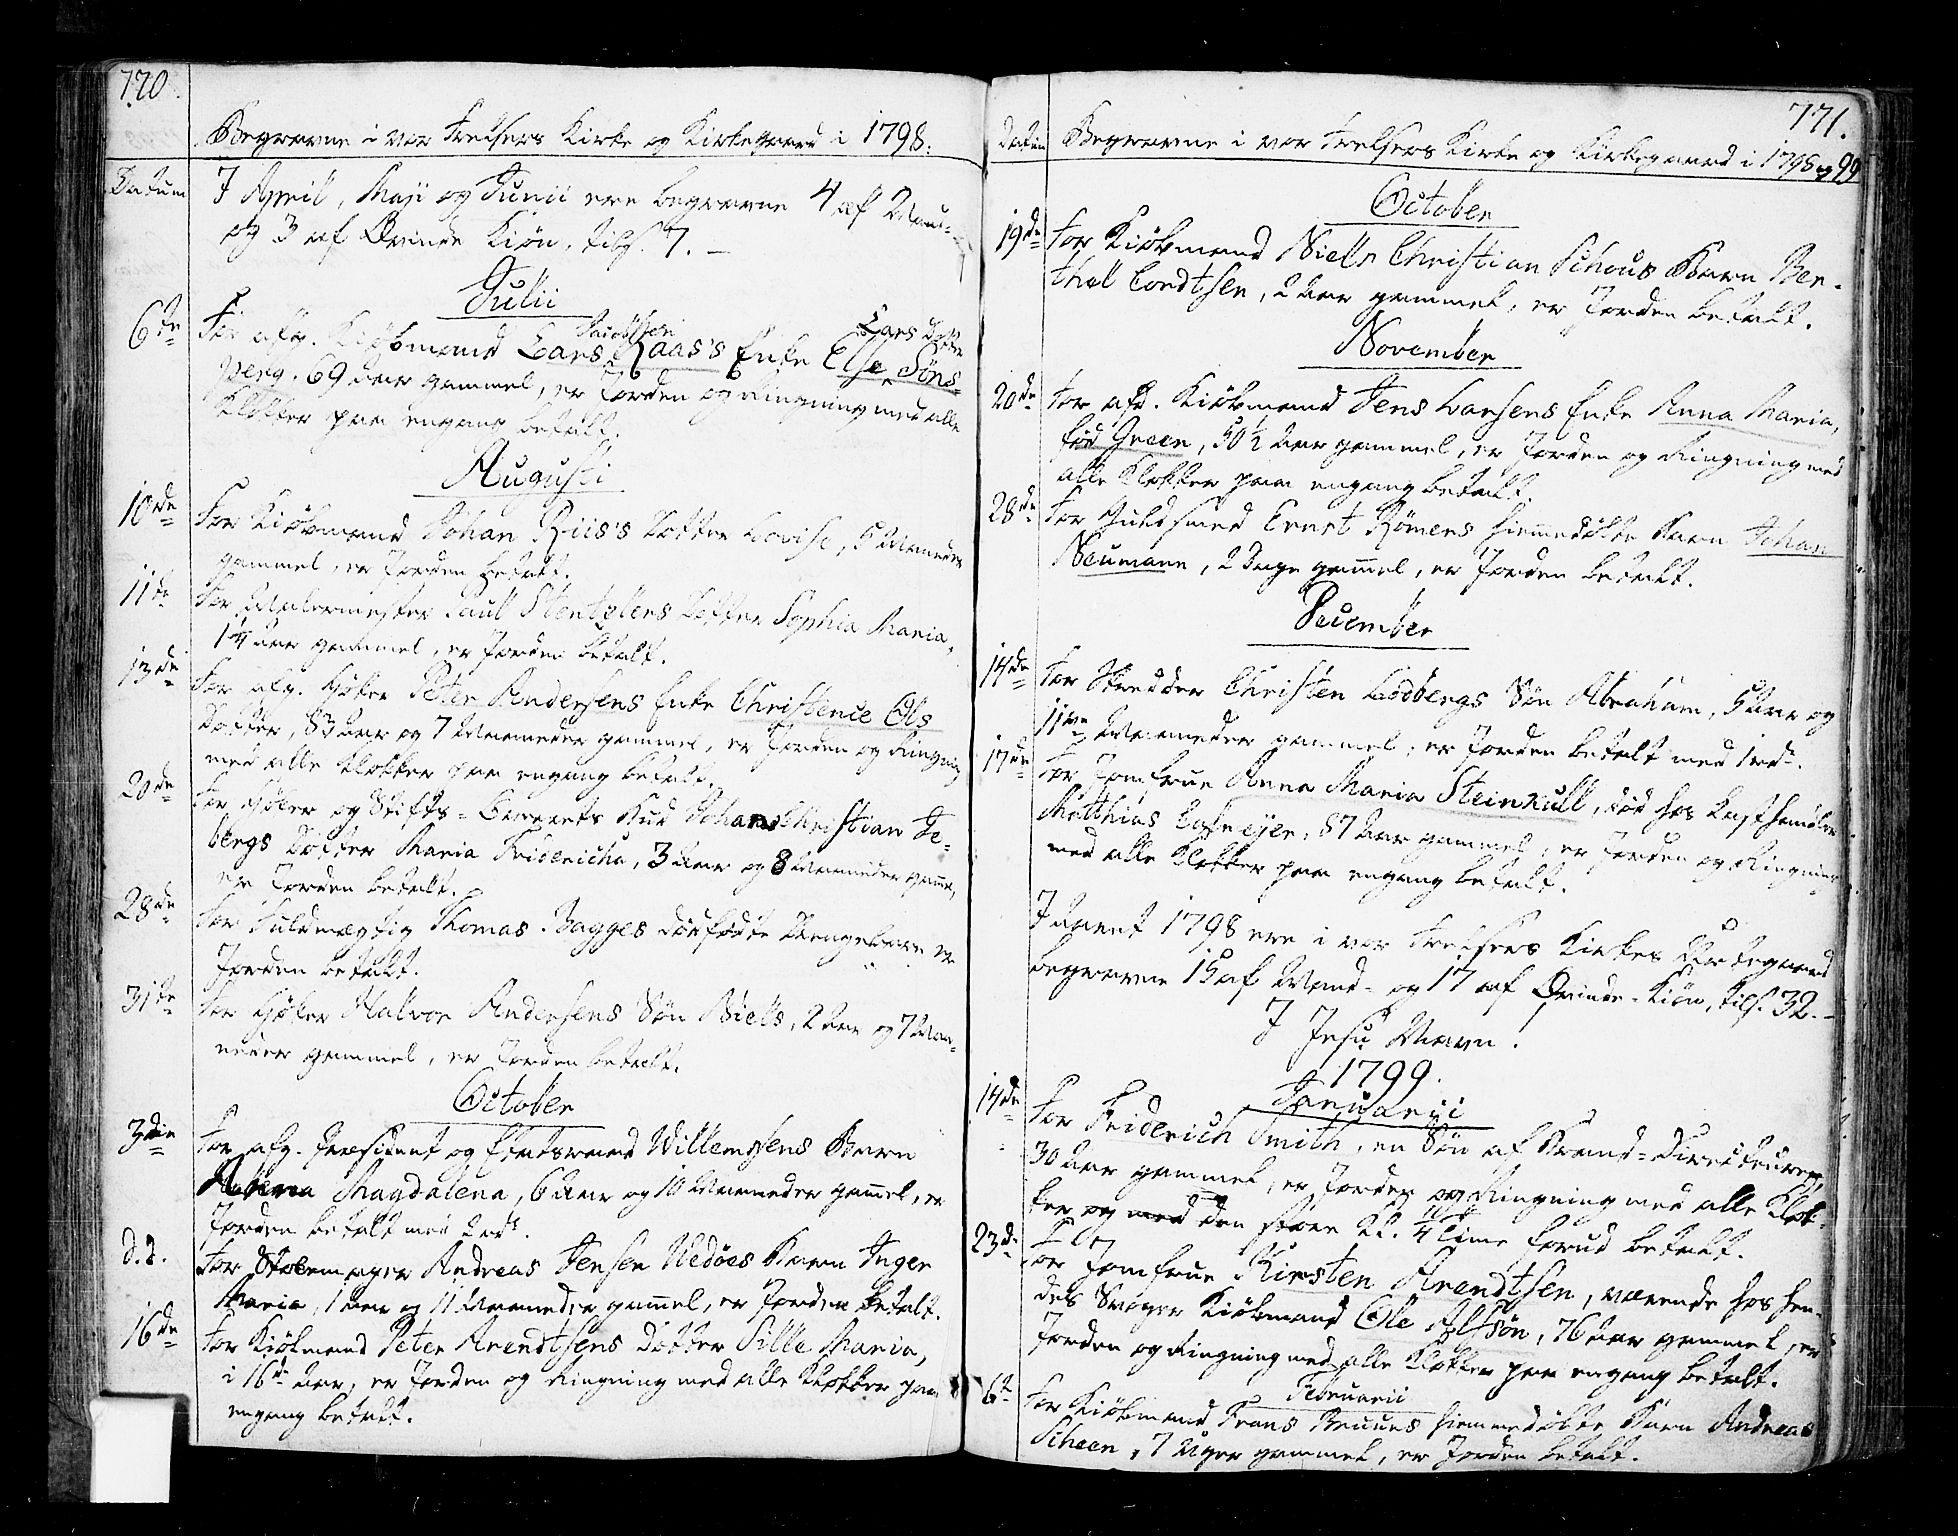 770.
Begravne i vor Frelsers Kirke og Kirkegaard i 1798.
Datum
I April, Maji og Junii ere begravne 4 af Mand-
og 3 af Qvinde Kiøn, tils. 7. —
Julii
6te
For afg. Kiøbmand Lars Jacobsen Raas's Enke Else Lars Dotter Søns-
berg, 69 Aar gammel, er Jorden og Ringning med alle
Klokker paa engang betalt.
Augusti
10de
For Kiøbmand Johan Riis's Dotter Lovise, 5 Maaneder
gammel, er Jorden betalt.
11te
For Malermester Paul Stentzlers Dotter Sophia Maria,
1¼ Aar gammel, er Jorden betalt.
13de
For afg. Høker Peter Andersens Enke Christence Ols
Dotter, 83 Aar og 7 Maaneder gammel, er Jorden og Ringning
med alle Klokker paa engang betalt.
20de
For Høker og Stifts-Bud Johan Christian Je-
bergs Dotter Maria Fridericha, 3 Aar og 8 Maaneder gaml.,
er Jorden betalt.
28de
For Fuldmægtig Thomas Bagges dødfødte Drengebarn er
Jorden betalt.
31te
For Høker Halvor Andersens Søn Niels, 2 Aar og 7 Maa-
neder gammel, er Jorden betalt.
October
3die
For afg. Præsident og Etatsraad Willemsens Barn
Magdalena, 6 Aar og 10 Maaneder gamel, er
Jorden betalt med 2 rds.
d.d.
For Andreas Jensen Nedøes Barn Inger
Maria, 1 Aar og 11 Maaneder gamel, er Jorden betalt.
16de
For Kiøbmand Peter Arendtsens Dotter Sille Maria,
i 16de Aar, er Jorden og Ringning med alle Klokker paa
engang betalt.
771.
Datum
Begravne i vor Frelsers Kirke og Kirkegaard i 1798 og 99
October
19de
For Kiøbmand Niels Christian Schous Barn Ber-
thel Cordtsen, 2 Aar gammel, er Jorden betalt.
November
20de
For afd. Kiøbmand Jens Larsens Enke Anna Maria,
fød Green, 50½ Aar gammel, er Jorden og Ringning med
alle Klokker paa engang betalt.
28de
For Guldsmed Ernst Römers hiemmedøbte Barn Johan
Neumann, 2 Dage gamel, er Jorden betalt.
December
14de
For Skredder Christen Lodbergs Søn Abraham, 5 Aar og
11ve Maaneder gammel, er Jorden betalt med 1 rd.
17de
For Jomfrue Anna Maria Steinkull, død hos Lasthandler
Matthias, 87 Aar gammel, er Jorden og Ringning
med alle Klokker paa engang betalt.
I Aaret 1798 ere i vor Frelsers Kirkes Kirkegaard
begravne 15 af Mand- og 17 af Qvinde-Kiøn, tils. 32. —
I Jesu Navn!
1799.
Januarii
14de
For Friderich Smith, en Søn af Brand-Directeuren,
30 Aar gammel, er Jorden og Ringning med alle Klok-
ker og med den store Kl. ¼ Time forud betalt.
23de
For Jomfrue Kirsten Arendtsen, værende hos hen-
des Svoger Kiøbmand Ole Alfsøn, 76 Aar gammel, er
Jorden og Ringning med alle Klokker paa engang betalt.
Februarii
6te
For Kiøbmand Frans Bruuns hiemmedøbte Barn Andreas
Scheen, 7 Uger gammel, er Jorden betalt.